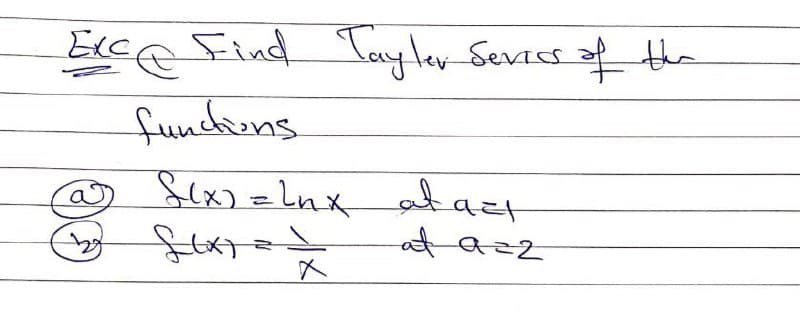 Exc ① Find Tayler Series of the
functions
a) f(x) = Ln x at a=1
b) f(x) = 1/x at a=2